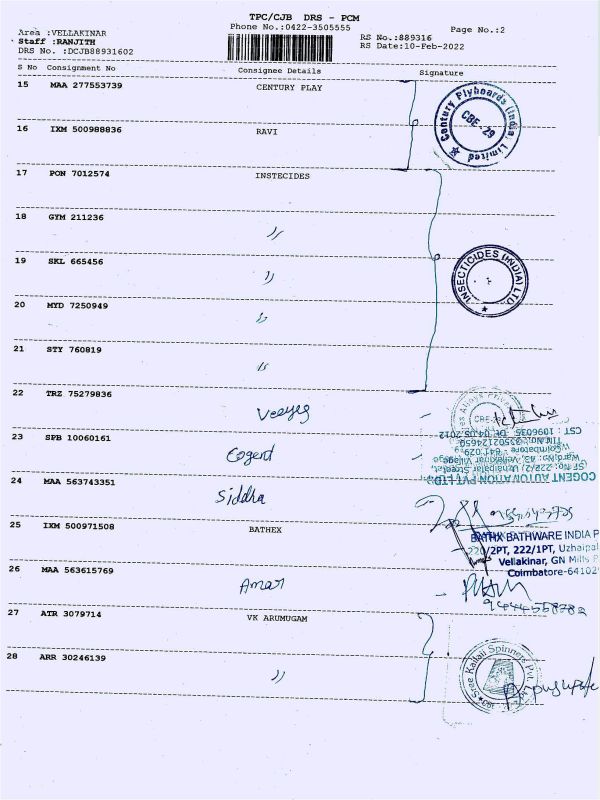 TPC/CJB DRS - PCM
Phone No.:0422-3505555
Page No.:2
Area :VELLAKINAR
Staff :RANJITH
DRS No. :DCJB88931602
RS No.:889316
RS Date:10-Feb-2022
S No Consignment No Consignee Details Signature
15 MAA 277553739 CENTURY PLAY
Century Plyboards (India) Limited
CBE - 29
16 IXM 500988836 RAVI
17 PON 7012574 INSTECIDES
18 GYM 211236 〃
19 SKL 665456 〃
INSECTICIDES (INDIA) LTD.
20 MYD 7250949 〃
21 STY 760819 〃
22 TRZ 75279836 Veeyes
23 SPB 10060161 Cogent
COGENT AUTOMATION PVT LTD.,
SF.No: 222/2, Uzhaipalar Street,
Ward No: 43, Vellakinar Village
Coimbatore - 641 029.
TIN No.: 33502124650
CST : 1096035 Dt: 04.05.2012
24 MAA 563743351 Siddha
25 IXM 500971508 BATHEX
BATHX BATHWARE INDIA P
220/2PT, 222/1PT, Uzhaipal
Vellakinar, GN Mills P
Coimbatore-64102
26 MAA 563615769 Amar
9444558782
27 ATR 3079714 VK ARUMUGAM
28 ARR 30246139 〃
Sree Kailaii Spinners Pvt.